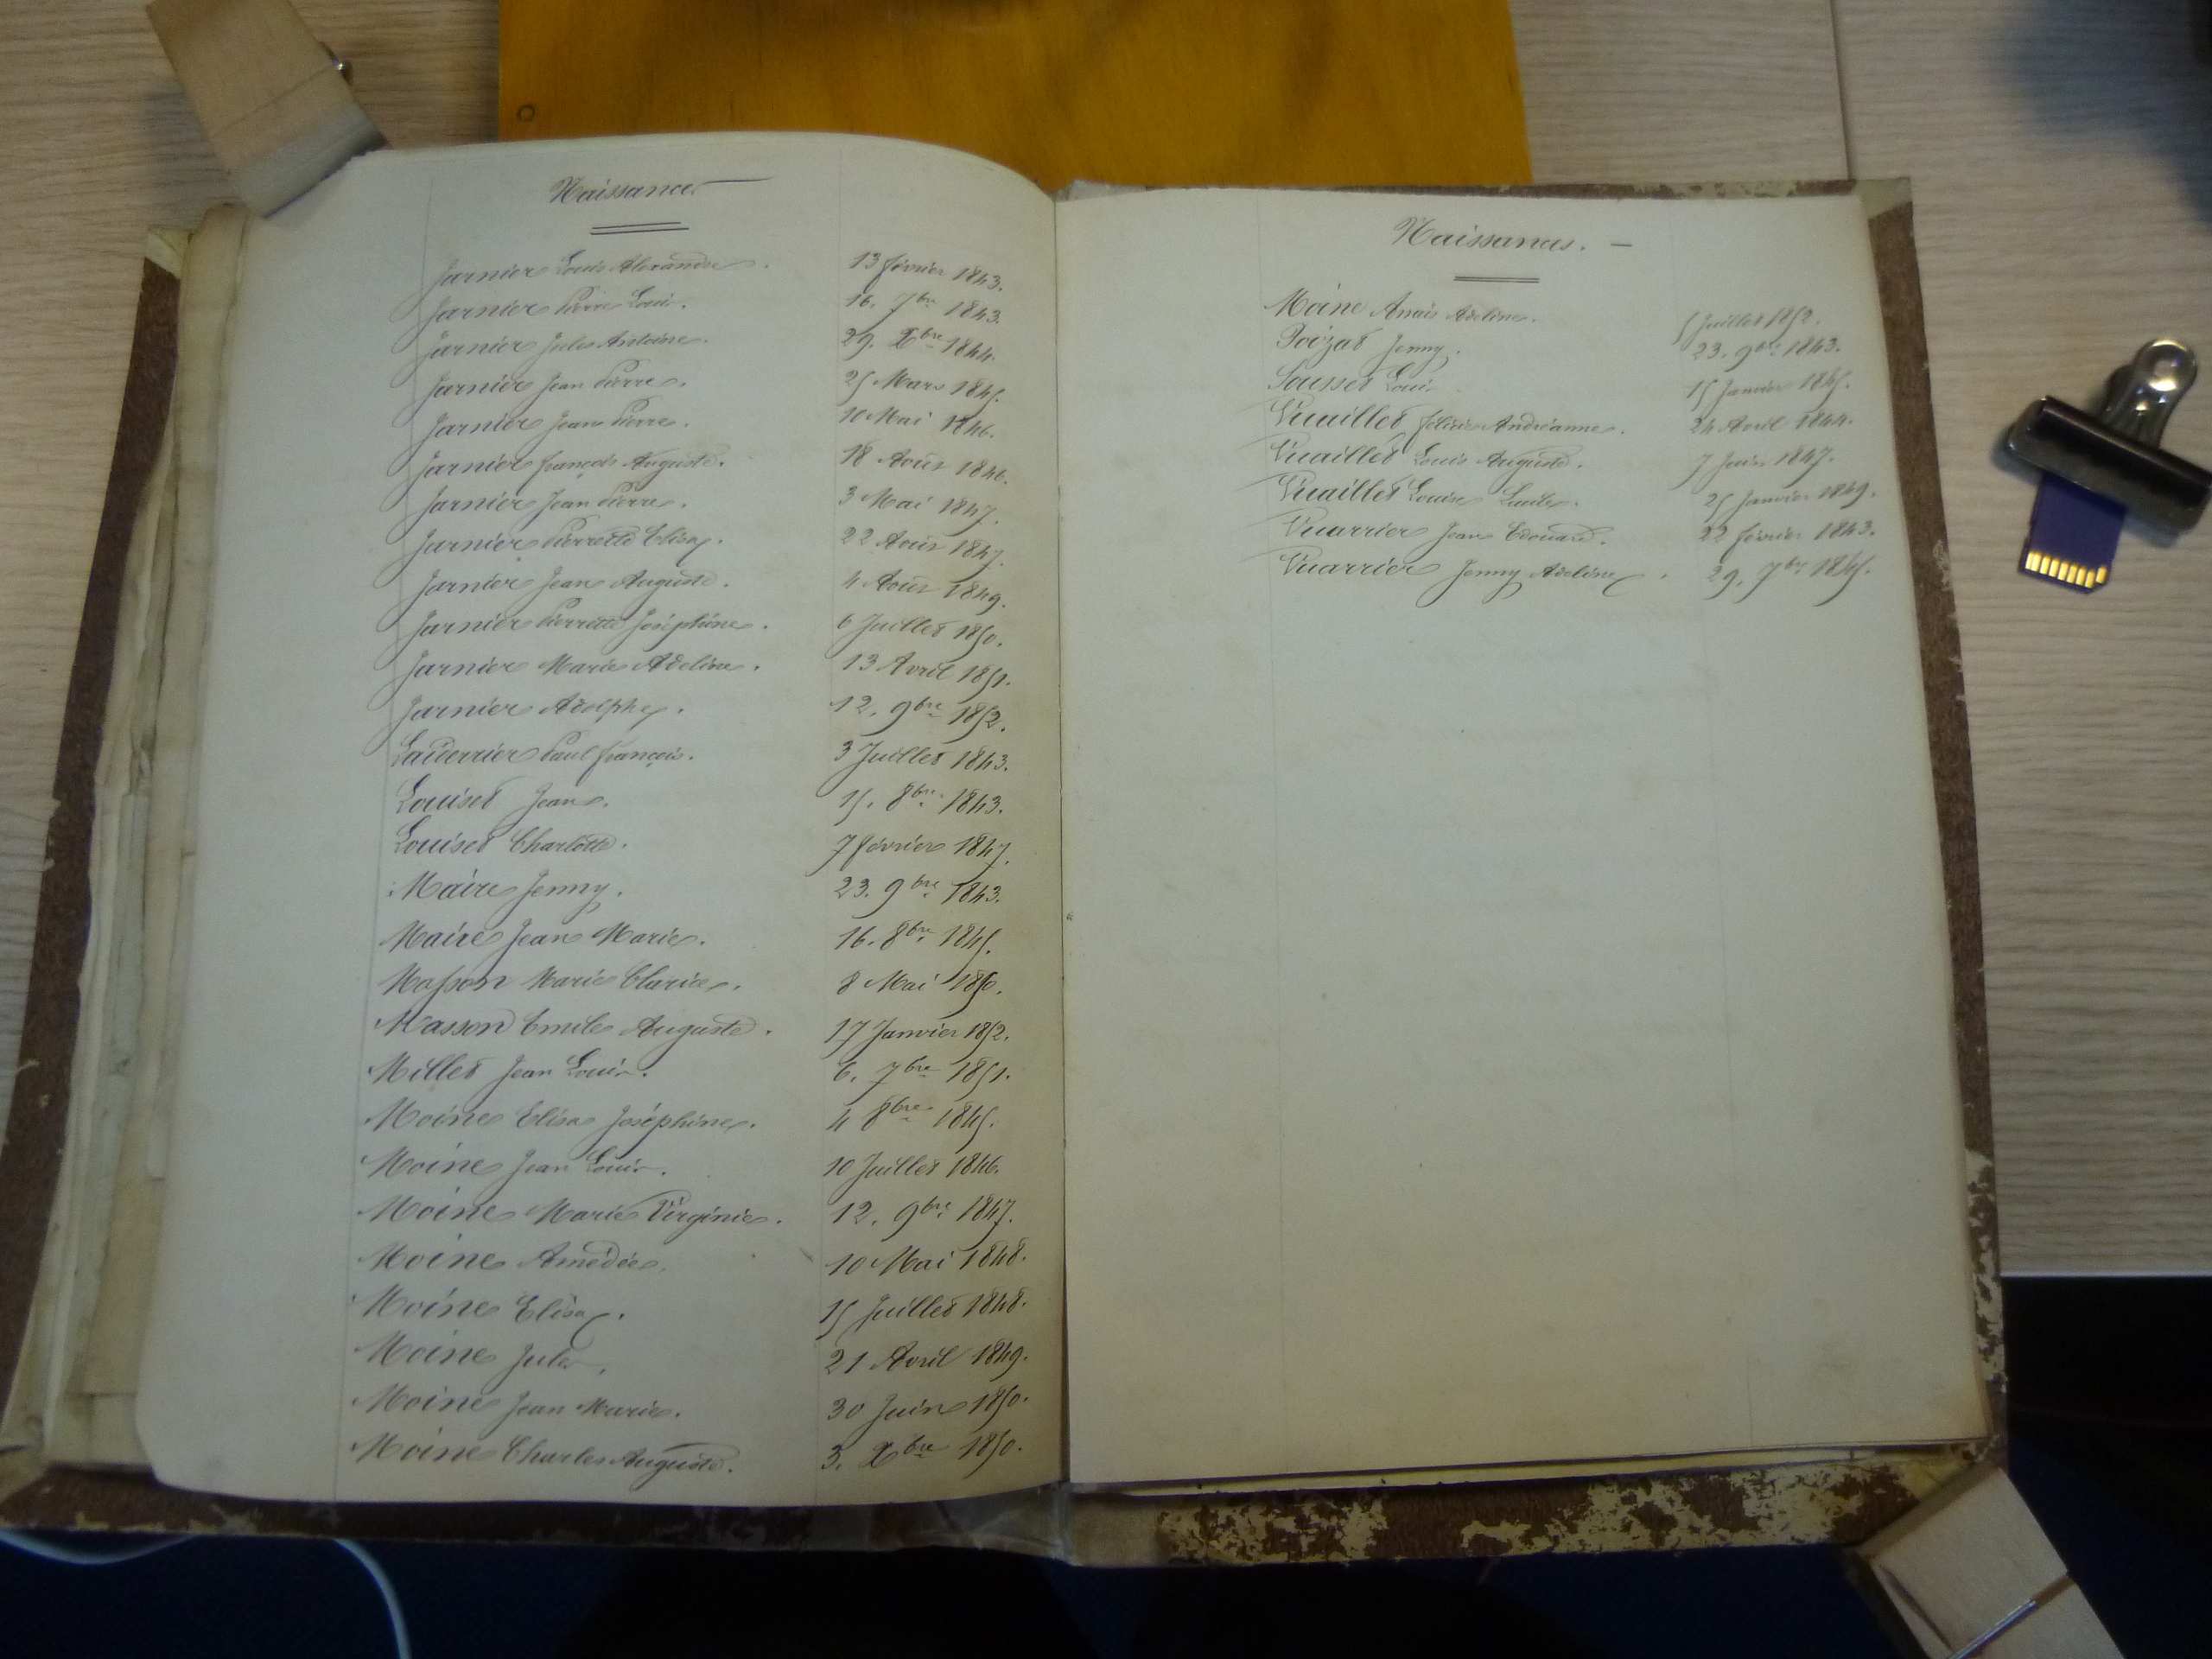 Naissances
Jarnier Louis Alexandre. 13 février 1843.
Jarnier Pierre Louis. 16. 7bre 1843.
Jarnier Jules Antoine. 29. Xbre 1844.
Jarnier Jean Pierre. 25 Mars 1845.
Jarnier Jean Pierre. 10 Mai 1846.
Jarnier françois Auguste. 18 Août 1846.
Jarnier Jean Pierre. 3 Mai 1847.
Jarnier Pierrette Elisa. 22 Août 1847.
Jarnier Jean Auguste. 4 Août 1849.
Jarnier Pierrette Joséphine. 6 Juillet 1850.
Jarnier Marie Adeline. 13 Avril 1851.
Jarnier Adolphe. 12. 9bre 1852.
Paul françois. 3 Juillet 1843.
Louiset Jean. 15. 8bre 1843.
Louiset Charlotte. 7 février 1847.
Maire Jenny. 23. 9bre 1843.
Maire Jean Marie. 16. 8bre 1845.
Masson Marie Clarice. 8 Mai 1850.
Masson Emile Auguste. 17 Janvier 1852.
Millet Jean Louis. 6. 7bre 1851.
Moine Elisa Joséphine. 4 8bre 1845.
Moine Jean Louis. 10 Juillet 1846.
Moine Marie Virginie. 12. 9bre 1847.
Moine Amédée. 10 Mai 1848.
Moine Elisa. 15 Juillet 1848.
Moine Jules, 21 Avril 1849.
Moine Jean Marie. 30 Juin 1850.
Moine Charles Auguste. 3. Xbre 1850.
Naissances. —
Moine Anaïs Adeline. 5 Juillet 1852.
Poizat Jenny. 23. 9bre 1843.
Sausset Louis 15 Janvier 1845.
Vuaillet félicie Andréanne. 24 Avril 1844.
Vuaillet Louis Auguste. 7 Juin 1847.
Vuaillet Louise 25 Janvier 1849.
Vuarrier Jean Edouard. 22 février 1843.
Vuarrier Jenny Adeline. 29. 7bre 1845.